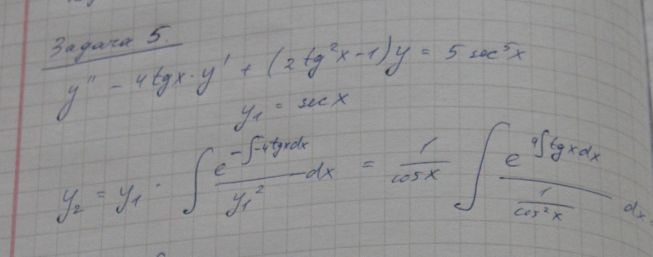 Задача 5.
y'' - 4tgx·y' + (2tg²x-1)y = 5 sec⁵x
y₁ = sec x
y₂ = y₁ · ∫ e^(-∫-4tgxdx) / y₁² dx = 1/cosx ∫ e^(4∫tgxdx) / (1/cos²x) dx